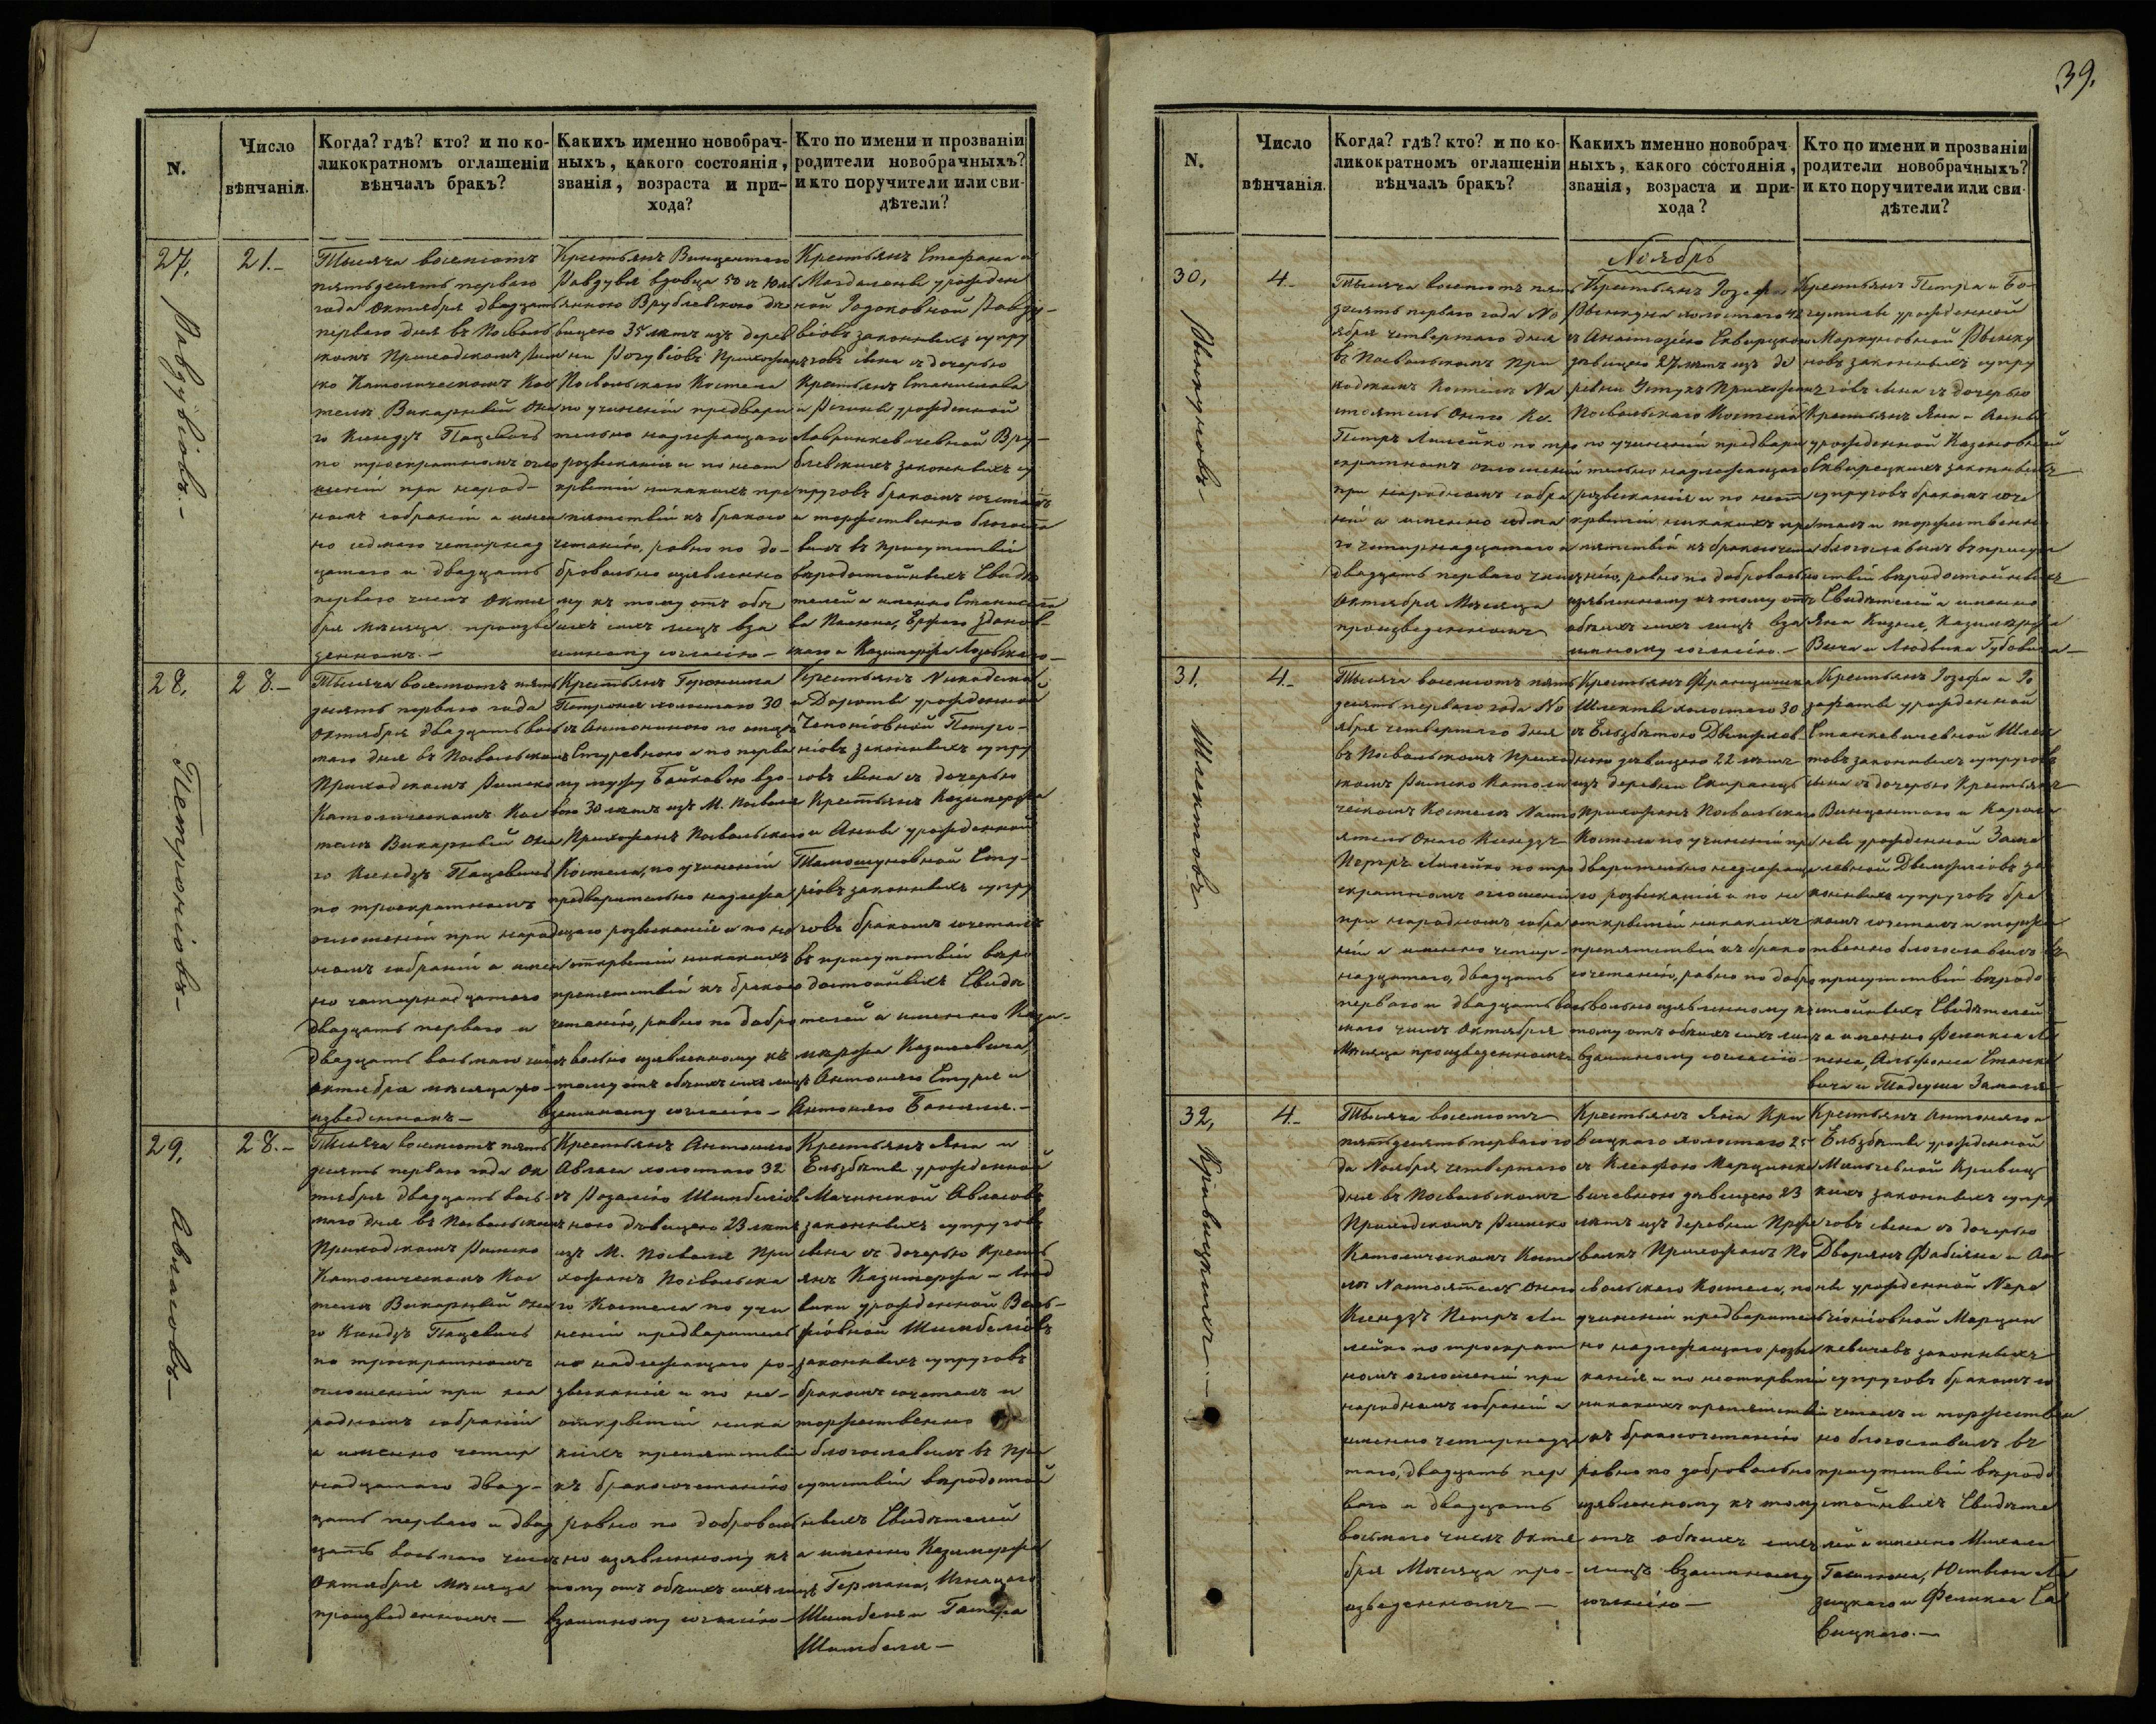 39.
N.
Число
вѣнчанія.
Когда? гдѣ? кто? и по ко-
ликократномъ оглашеніи
вѣнчалъ бракъ?
Какихъ именно новобрач-
ныхъ, какого состоянія,
званія, возраста и при-
хода?
Кто по имени и прозванію
родители новобрачныхъ?
и кто поручители или сви-
дѣтели?
27.
21.-
Тысяча восемсотъ
пятьдесятъ перваго
года Октября двадцать
перваго дня въ Посволь
скомъ Приходскомъ Рим
ко Католическомъ Кос
телѣ Викарный она
го Ксендзъ Пацевичъ
по троекратномъ огло
шеніи при народ-
номъ собраніи а имен
но седмаго четырнад
цатаго и двадцать
перваго чиселъ Октя
бря мѣсяца произве
денномъ.-
Крестьянъ Винцентаго
вдовца 50 съ Юлі
янною Врублевскою дѣ
вицею 35 лѣтъ изъ дерев
ни Прихожан
Посвольскаго Костела
по учиненіи предвари
тельно надлежащаго
розысканія и по неот
крытіи никакихъ пре
пятствій къ бракосо
четанію, равно по до-
бровольно изъявленно
му къ тому отъ обѣ
ихъ сихъ лицъ вза
имному согласію -
Крестьянъ Стефана и
Магдалены урожден
ной
законныхъ супру
говъ сына съ дочерью
Крестьянъ Станислава
и Регины урожденной
Лавринкевичевной Вру-
блевскихъ законныхъ су
пруговъ бракомъ сочеталъ
и торжественно благосла
вилъ въ присутствіи
вѣродостойныхъ Свидѣ
телей а именно Станисла
ва
и Казимержа
28.
28.-
Петронісвъ-
Тысяча восемсотъ пять
десятъ перваго года
Октября двадцать вось
маго дня въ Посвольском
Приходскомъ Римско
Католическомъ Кос
телѣ Викарный она
го Ксендзъ Пацевичъ
по троекратномъ
оглошеніи при народ
номъ собраніи а имен
но четырнадцатаго
двадцать перваго и
двадцать восьмаго чис
Октября мѣсяца про-
изведенномъ-
Крестьянъ Геронима
Петроня холостаго 30
съ Антониною по отцѣ
Стуревною а по перво
му мужу вдо-
вою 30 лѣтъ изъ М. Посволя
Прихожанъ Посвольскаго
Костела, по учиненіи
предварительно надлежа
щаго розысканія и по не
открытіи никакихъ
препятствій къ бракосо
четанію, равно по добро
вольно изъявленному къ
тому отъ обѣихъ сихъ лицъ
взаимному согласію -
Крестьянъ
и Дороты урожденной
законныхъ супру
говъ сына съ дочерью
Крестьянъ Казимержа
и Анны урожденной
Сту-
законныхъ супру
говъ бракомъ сочеталъ
въ присутствіи вѣро
достойныхъ Свидѣ
телей а именно Кази-
мержа
Антонего Стуря и
Антонего
29.
28.-
Авласовъ-
Тысяча восемсотъ пять
десятъ перваго года Ок
тября двадцать вось-
маго дня въ Посвольском
Приходскомъ Римско
Католическомъ Кос
телѣ Викарный она
го Ксендзъ Пацевичъ
по троекратномъ
оглошеніи при на
родномъ собраніи
а именно четыр
надцатаго двад-
цать перваго и двад
цать восьмаго числ
Октября мѣсяца
произведенномъ -
Крестьянъ Антонего
Авласа холостаго 32
съ Розаліею
ною дѣвицею 23 лѣтъ
изъ М. Посволя При
хожанъ Посвольска
го Костела по учи
неніи предваритель
но надлежащаго ро-
зысканія и по не-
открытіи ника
кихъ препятствій
къ бракосочетанію
равно по доброволь
но изъявленному къ
тому отъ обѣихъ сихъ лицъ
взаимному согласію -
Крестьянъ Яна и
Ельзбеты урожденной
Авласовъ
законныхъ супруговъ
сына съ дочерью кресть
янъ Казимержа и Люд
вики урожденной
законныхъ супруговъ
бракомъ сочеталъ и
торжественно
благославилъ въ при
сутствіи вѣродостой
ныхъ Свидѣтелей
а именно Казимержа
Германа, Игнацего
N.
Число
вѣнчанія.
Когда? гдѣ? кто? и по ко-
ликократномъ оглашеніи
вѣнчалъ бракъ?
Какихъ именно новобрач-
ныхъ, какого состоянія,
званія, возраста и при-
хода?
Кто по имени и прозванію
родители новобрачныхъ?
и кто поручители или сви-
дѣтели?
Ноябрь
30,
4.-
Тысяча восемсотъ пять
десятъ перваго года Но
ября четвертаго дня
въ Посвольскомъ При
ходскомъ Костелѣ На
стоятель онаго Кс.
Петръ Лилейко по тро
екратномъ оглошеніи
при народномъ собра
ніи а именно седма
го четырнадцатаго и
двадцать перваго чис
Октября Мѣсяца
произведенномъ
Крестьянъ Іозефа
холостаго 42
съ Анастазіею Сквирецкою
дѣвицею 27 лѣтъ изъ де
ревни Прихожан
Посвольскаго Костела
по учиненіи предвари
тельно надлежащаго
розысканія и по неот
крытіи никакихъ пре
пятствій къ бракосочета
нію, равно по добровольно
изъявленному къ тому отъ
обѣихъ сихъ лицъ вза
имному согласію.-
Крестьянъ Петра и Бо-
гумилы урожденной
законныхъ супру
говъ сына съ дочерью
Крестьянъ Яна и Анны
урожденной
Сквирецкихъ законныхъ
супруговъ бракомъ соче
талъ и торжественно
благославилъ въ присут
ствіи вѣродостойныхъ
Свидѣтелей а именно
Яна Казимержа
и Людвика
31.
4.-
Шлектовъ
Тысяча восемсотъ пять
десятъ перваго года Но
ября четвертаго дня
въ Посвольскомъ Приход
скомъ Римско Католи
ческомъ Костелѣ Насто
ятель онаго Ксендзъ
Петръ Лилейко по тро
екратномъ оглошеніи
при народномъ собра
ніи а именно четыр-
надцатаго, двадцать
перваго и двадцать вось
маго чиселъ Октября
Мѣсяца произведенномъ
Крестьянъ Францишка
Шлекты холостаго 30
съ Ельзбетою
ною дѣвицею 22 лѣтъ
изъ деревни
Прихожанъ Посвольскаго
Костела по учиненіи пре
дварительно надлежаща
го розысканія и по не
открытіи никакихъ
препятствій къ брако
сочетанію, равно по добро
вольно изъявленному къ
тому отъ обѣихъ сихъ лицъ
взаимному согласію -
Крестьянъ Іозефа и Іо
зефаты урожденной
Станкевичевной Шлек
товъ законныхъ супруговъ
сына съ дочерью Крестьянъ
Винцентаго и Кароли
ны урожденной
бра
комъ сочеталъ и торже
ственно благославилъ въ
присутствіи вѣродо
стойныхъ Свидѣтелей
а именно Феликса
Альфонса Станке
вича и Тадеуша
32,
4.-
Кривицкихъ.-
Тысяча восемсотъ
пятьдесятъ перваго го
да Ноября четвертаго
дня въ Посвольскомъ
Приходскомъ Римско
Католическомъ Косте
лѣ Настоятель онаго
Ксендзъ Петръ Ли
лейко по троекрат
номъ оглошеніи при
народномъ собраніи а
именно четырнадца
таго, двадцать пер
ваго и двадцать
восьмаго чиселъ Октя
бря Мѣсяца про-
изведенномъ -
Крестьянъ Яна Кри
вицкаго холостаго 25
съ Клеофою Марцинке
вичевною дѣвицею 23
лѣтъ изъ деревни
Прихожанъ По
свольскаго Костела, по
учиненіи предваритель
но надлежащаго розыс
канія и по неоткрытіи
никакихъ препятствій
къ бракосочетанію
равно по добровольно
изъявленному къ тому
отъ обѣихъ сихъ
лицъ взаимному
согласію -
Крестьянъ Антонего и
Ельзбеты урожденной
Кривиц
кихъ законныхъ супру
говъ сына съ дочерью
Дворянъ Фабіяна и Ан
ны урожденной
Марцин
кевичовъ законныхъ
супруговъ бракомъ со
четалъ и торжествен
но благославилъ въ
присутствіи вѣродо
стойныхъ Свидѣте
лей а именно Михала
и Феликса Са
вицкаго.-